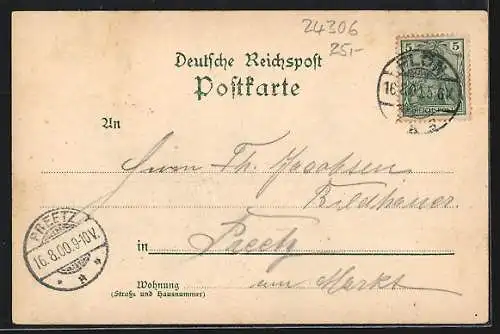 24306
25,-
Deutsche Reichspost
Postkarte
5 5
PLÖN
16.8.00.5-6V.
REICHSPOST
An
Herrn Th. Jacobsen
Bildhauer
in Preetz
am Markt
Wohnung
(Straße und Hausnummer)
PREETZ
16.8.00.9-10V.